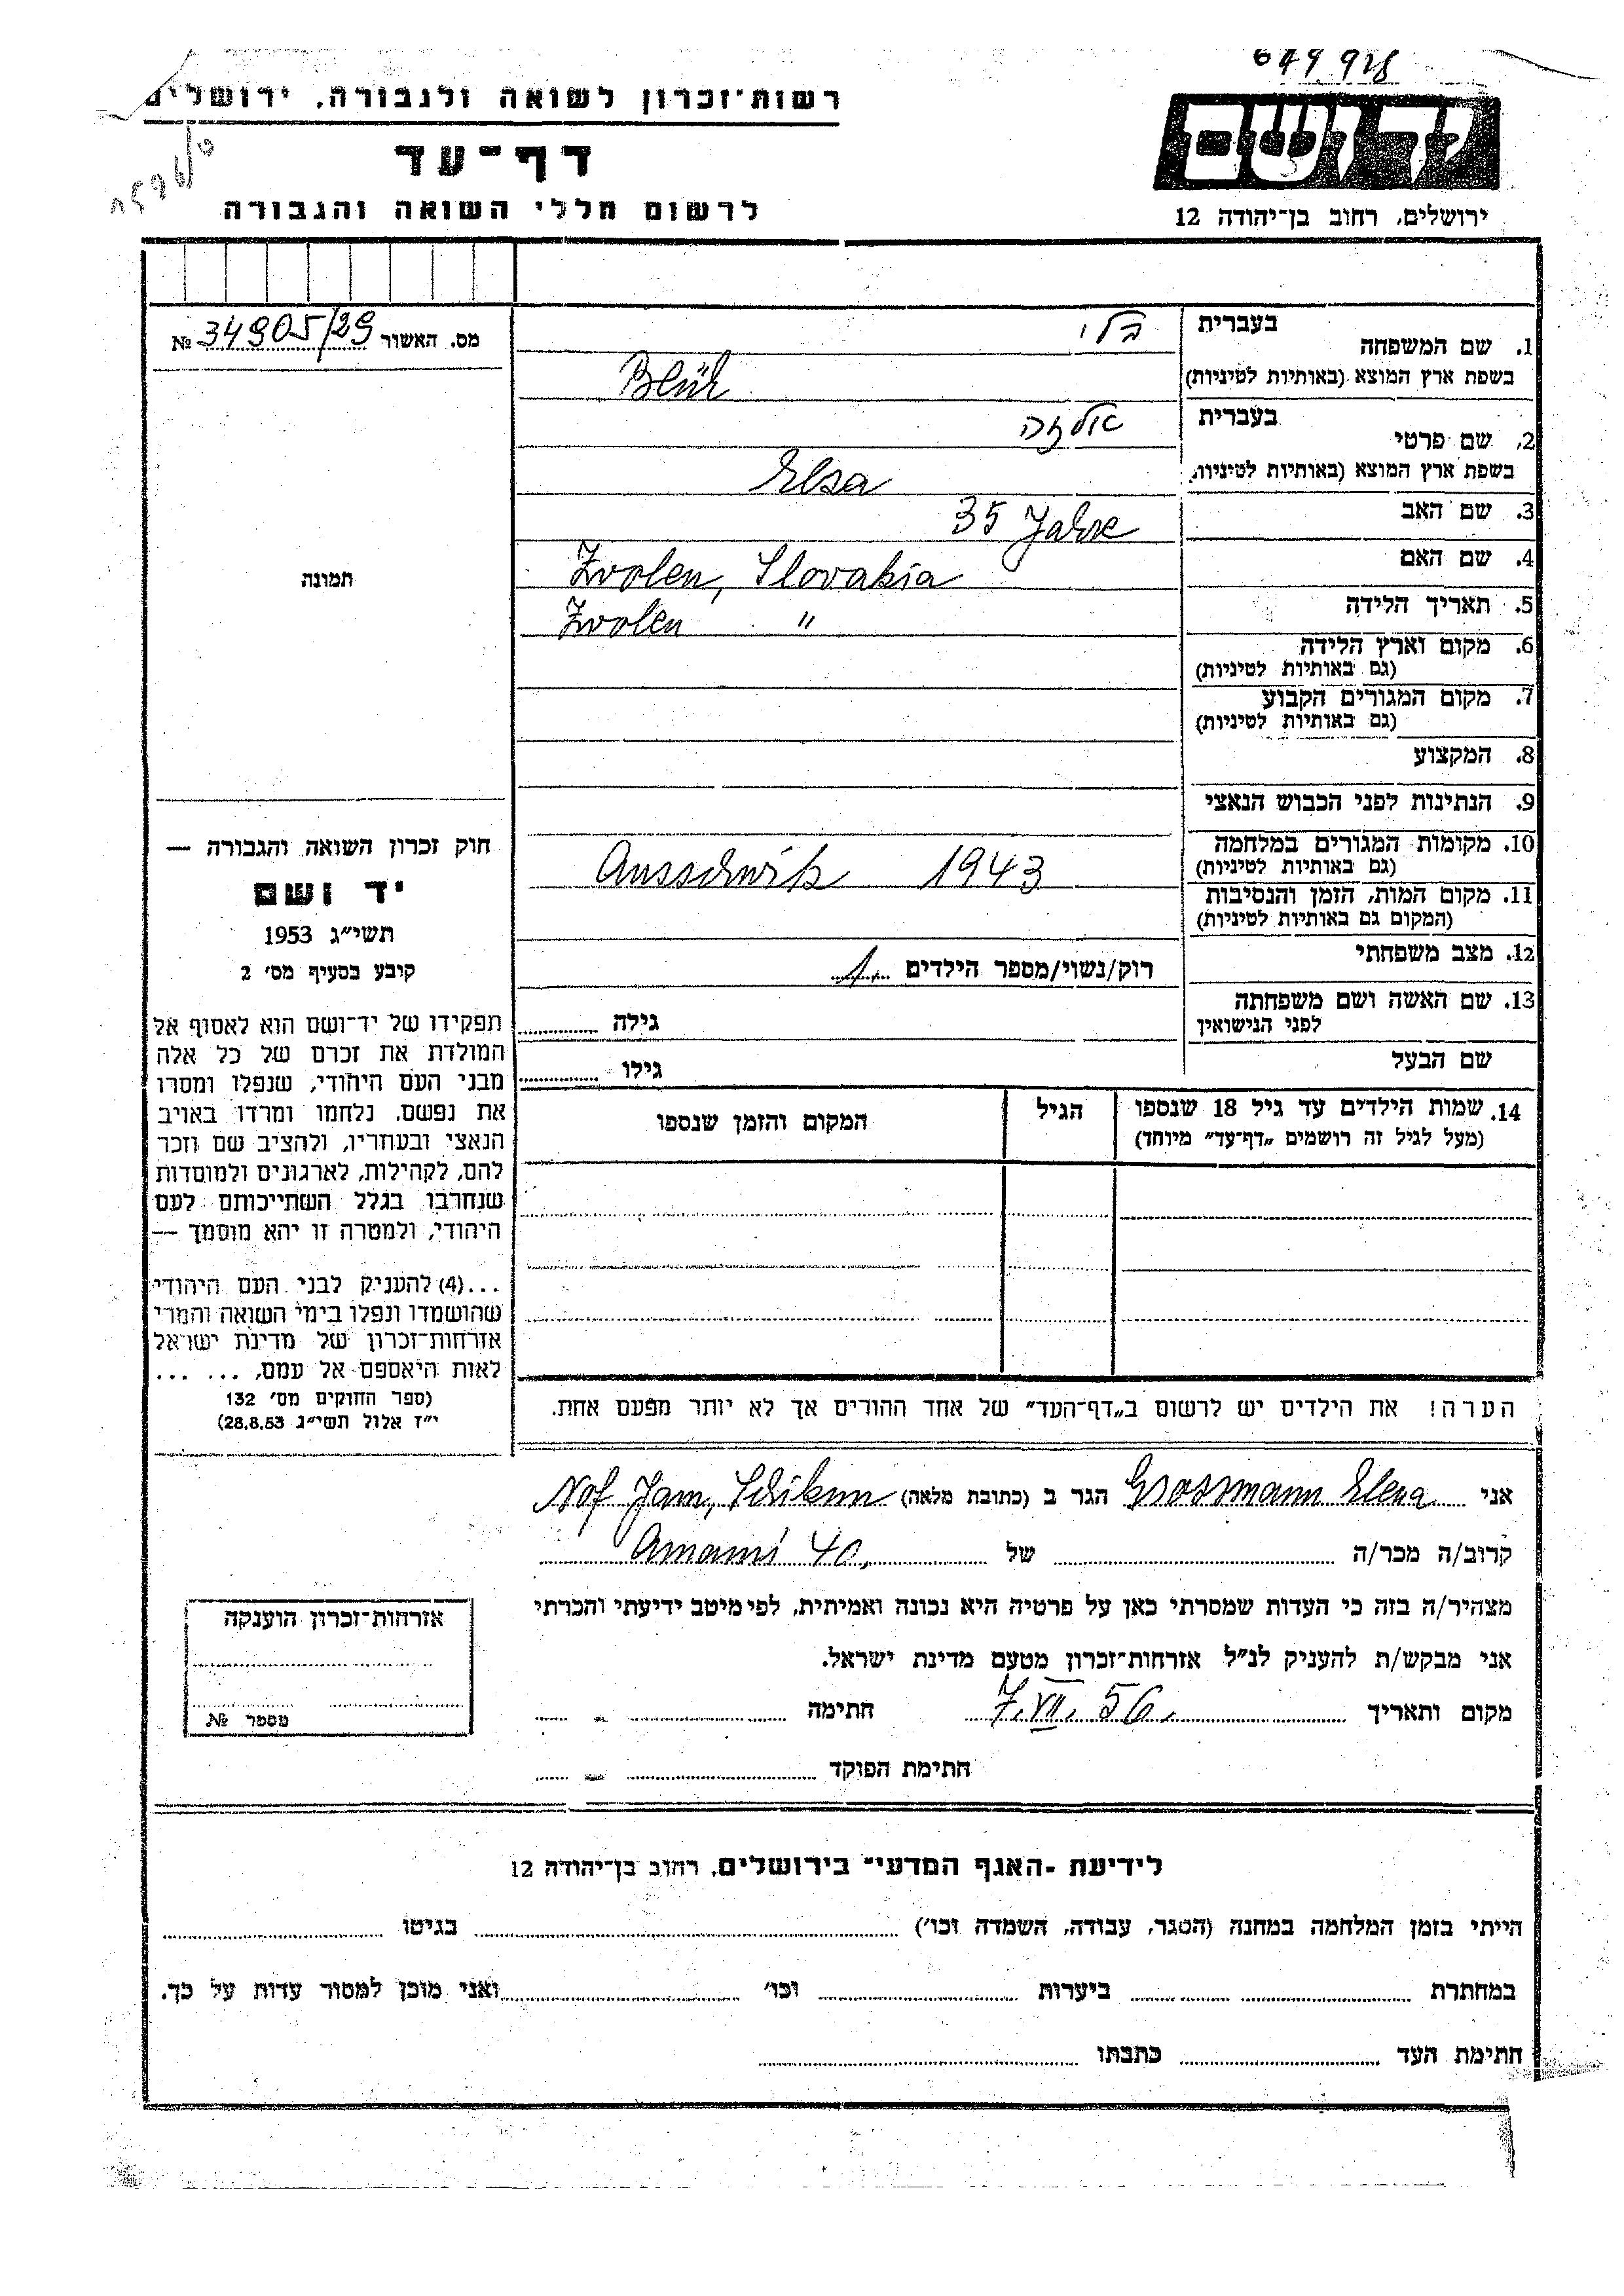 רשות־זכרון לשואה ולגבורה, ירושלים
דף־עד
לרשום חללי השואה והגבורה
יד ושם
ירושלים, רחוב בן־יהודה 12
מס. האשור № 34905/29
תמונה
1. שם המשפחה
בעברית בלי
בשפת ארץ המוצא (באותיות לטיניות) Blüh
2. שם פרטי
בעברית אלזה
בשפת ארץ המוצא (באותיות לטיניות) Elsa
3. שם האב 35 Jahre
4. שם האם Zvolen, Slovakia
5. תאריך הלידה Zvolen "
6. מקום וארץ הלידה
(גם באותיות לטיניות)
7. מקום המגורים הקבוע
(גם באותיות לטיניות)
8. המקצוע
9. הנתינות לפני הכבוש הנאצי
10. מקומות המגורים במלחמה
(גם באותיות לטיניות) Ausschwitz 1943
11. מקום המות, הזמן והנסיבות
(המקום גם באותיות לטיניות)
12. מצב משפחתי
רוק/נשוי/מספר הילדים 1
13. שם האשה ושם משפחתה
לפני הנישואין
גילה
שם הבעל
גילו
14. שמות הילדים עד גיל 18 שנספו
(מעל לגיל זה רושמים „דף־עד" מיוחד)
הגיל
המקום והזמן שנספו
חוק זכרון השואה והגבורה —
יד ושם
תשי״ג 1953
קובע בסעיף מס׳ 2
תפקידו של יד־ושם הוא לאסוף אל
המולדת את זכרם של כל אלה
מבני העם היהודי, שנפלו ומסרו
את נפשם, נלחמו ומרדו באויב
הנאצי ובעוזריו, ולהציב שם וזכר
להם, לקהילות, לארגונים ולמוסדות
שנחרבו בגלל השתייכותם לעם
היהודי, ולמטרה זו יהא מוסמך —
...(4) להעניק לבני העם היהודי
שהושמדו ונפלו בימי השואה והמרי
אזרחות־זכרון של מדינת ישראל
לאות היאספם אל עמם, ... ...
(ספר החוקים מס׳ 132
י״ז אלול תשי״ג 28.8.53)
הערה! את הילדים יש לרשום ב„דף־העד" של אחד ההורים אך לא יותר מפעם אחת.
אני Grossmann Elena הגר ב (כתובת מלאה) Nof Jam, Schikun
קרוב/ה מכר/ה של Amami 40,
מצהיר/ה בזה כי העדות שמסרתי כאן על פרטיה היא נכונה ואמיתית, לפי מיטב ידיעתי והכרתי
אני מבקש/ת להעניק לנ״ל אזרחות־זכרון מטעם מדינת ישראל.
מקום ותאריך 7.VII.56. חתימה
חתימת הפוקד
אזרחות־זכרון הוענקה
מספר №
לידיעת ־האגף המדעי־ בירושלים, רחוב בן־יהודה 12
הייתי בזמן המלחמה במחנה (הסגר, עבודה, השמדה וכו׳) בגיטו
במחתרת ביערות וכו׳ ואני מוכן למסור עדות על כך.
חתימת העד כתבתו